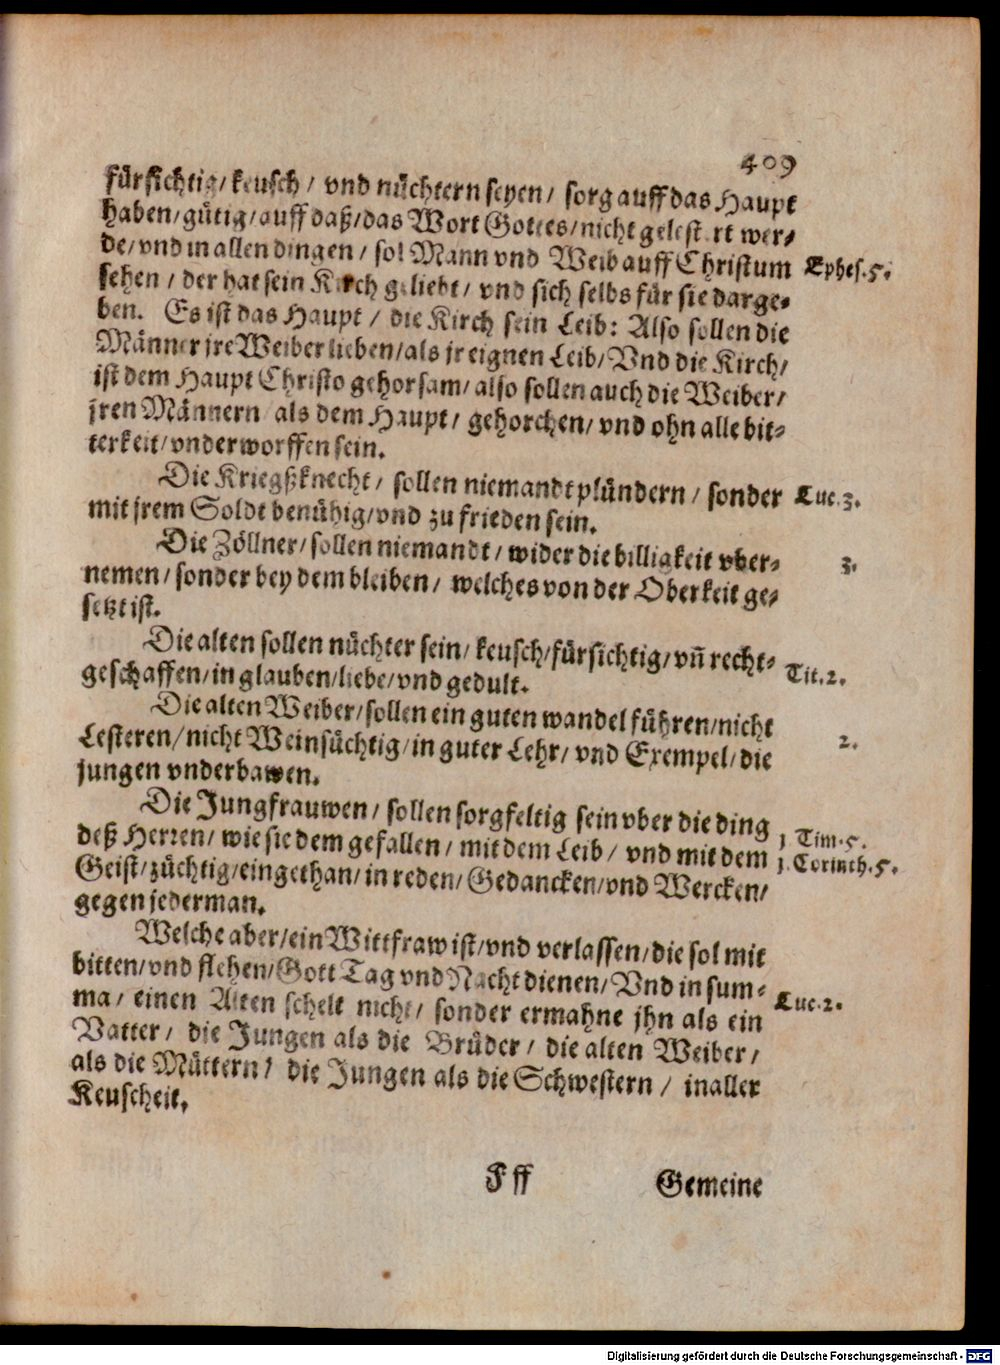 409
fürsichtig/ keusch/ vnd nüchtern seyen/ sorg auff das Haupt
haben/ gütig/ auff daß/ das Wort Gottes/ nicht gelestert wer-
de/ vnd in allen dingen/ sol Mann vnd Weib auff Christum Ephes. 5.
sehen/ der hat sein Kirch geliebt/ vnd sich selbs für sie darge-
ben. Es ist das Haupt/ die Kirch sein Leib: Also sollen die
Männer jre Weiber lieben/ als jr eignen Leib/ Vnd die Kirch/
ist dem Haupt Christo gehorsam/ also sollen auch die Weiber/
jren Männern als dem Haupt/ gehorchen/ vnd ohn alle bit-
terkeit/ vnderworffen sein.
Die Kriegßknecht/ sollen niemandt plündern/ sonder Luc. 3.
mit jrem Soldt benühig/ vnd zu frieden sein.
Die Zöllner/ sollen niemandt/ wider die billigkeit vber- 3.
nemen/ sonder bey dem bleiben/ welches von der Oberkeit ge-
setzt ist.
Die alten sollen nüchter sein/ keusch/ fürsichtig/ vñ recht-
geschaffen/ in glauben/ liebe/ vnd gedult. Tit. 2.
Die alten Weiber/ sollen ein guten wandel führen/ nicht
Lesteren/ nicht Weinsüchtig/ in guter Lehr/ vnd Exempel/ die 2.
jungen vnderbawen.
Die Jungfrauwen/ sollen sorgfeltig sein vber die ding
deß Herren/ wie sie dem gefallen/ mit dem Leib/ vnd mit dem 1. Tim. 5.
Geist/ züchtig/ eingethan/ in reden/ Gedancken/ vnd Wercken/ 1. Corinth. 5.
gegen jederman.
Welche aber/ ein Wittfraw ist/ vnd verlassen/ die sol mit
bitten/ vnd flehen/ Gott Tag vnd Nacht dienen/ Vnd in sum-
ma/ einen Alten schelt nicht/ sonder ermahne jhn als ein Luc. 2.
Vatter/ die Jungen als die Brüder/ die alten Weiber/
als die Müttern/ die Jungen als die Schwestern/ in aller
Keuscheit.
Fff Gemeine
Digitalisierung gefördert durch die Deutsche Forschungsgemeinschaft - DFG